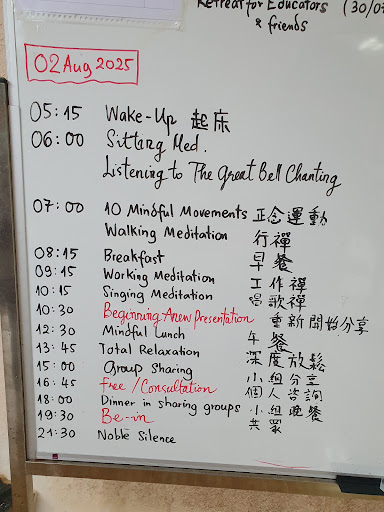 Retreat for Educators (30/07
& friends
02 Aug 2025
05:15 Wake-Up 起床
06:00 Sitting Med.
Listening to The Great Bell Chanting
07:00 10 Mindful Movements 正念運動
Walking Meditation 行禪
08:15 Breakfast 早餐
09:15 Working Meditation 工作禪
10:15 Singing Meditation 唱歌禪
10:30 Beginning Anew Presentation 重新開始分享
12:30 Mindful Lunch 午餐
13:45 Total Relaxation 深度放鬆
15:00 Group Sharing 小組分享
16:45 Free/Consultation 個人咨詢
18:00 Dinner in sharing groups 小組晚餐
19:30 Be-in 共眾
21:30 Noble Silence